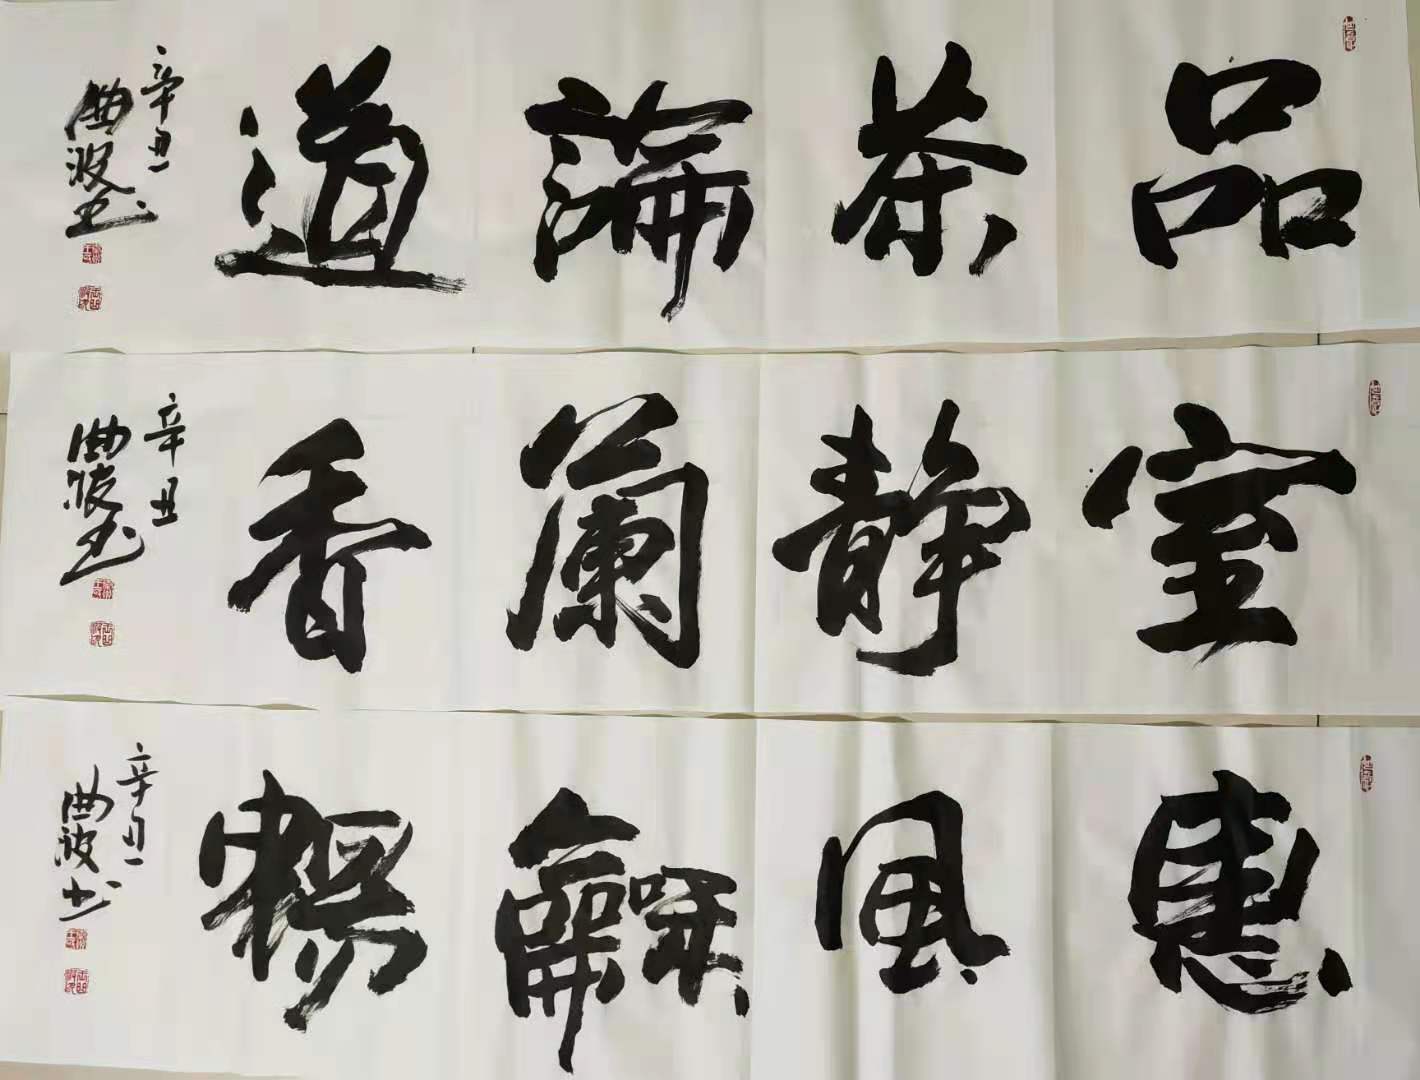 品茶論道
辛丑
曲波书
室靜蘭香
辛丑
曲波书
惠風龢暢
辛丑
曲波书